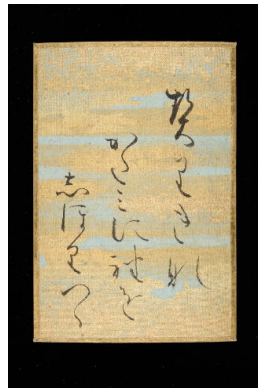 契きな
かたみに袖を
志ほりつゝ